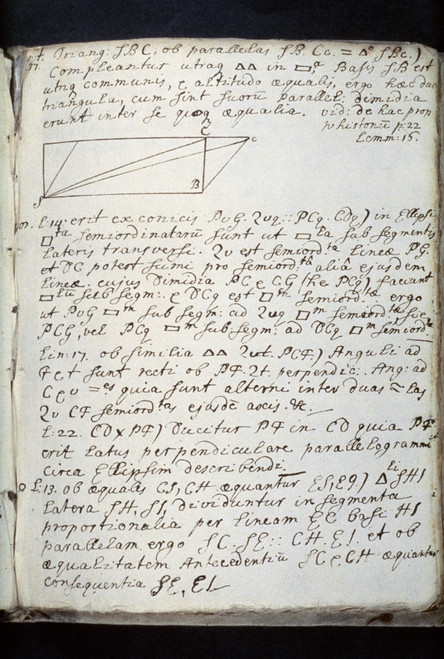 Triang: SBC, ob parallelas SB. Cc. = Δo SBc.)
Compleantur utraq ΔΔ in ▭a Basis SB est
utriq communis, & altitudo æqualis, ergo hæc duo
triangula, cum sint suorū parallel: dimidia
erunt inter se quoq æqualia. vid: de hac prop
Whistonū p: 22
Lemm: 15.
C
c
S
B
L: 14: erit ex conicis PvG. Qvq :: PCq. CDq) in Ellipsi
▭ta semiordinatarū sunt ut ▭la sub segmentis
lateris transversi. Qv est semiord:ta Lineæ PG.
et DC potest sumi pro semiord:ta aliâ ejusdem
Lineæ. cujus Dimidia PC & CG (he PCq) faciunt
▭lū sub segm: & DCq est ▭m semiord:æ ergo
ut PvG ▭m sub segm: ad Qvq ▭m semiordtæ sic
PCG, vel PCq ▭m sub segm: ad DCq ▭m semiord
Lin: 17. ob similia ΔΔ Qvt. PCF.) Anguli ad
F & t sunt recti ob PF. Qt. perpendic: Ang: ad
C & v =es quia sunt alterni inter duas = las
Qv CF semiordtas ejusdē axis. &c.
L: 22. CD x PF) Ducitur PF in CD quia PF
erit Latus perpendiculare parallelogrammi
circa Ellipsim describendi.
L: 13. ob æquales CS, CH æquantur ES, EI) Δli SHI
Latera SH, SI, dividuntur in segmenta
proportionalia per lineam EC basi HI
parallelam. ergo SC. SE :: CH. EI. et ob
æqualitatem Antecedentiū SC & CH æquantur
consequentia SE, EI